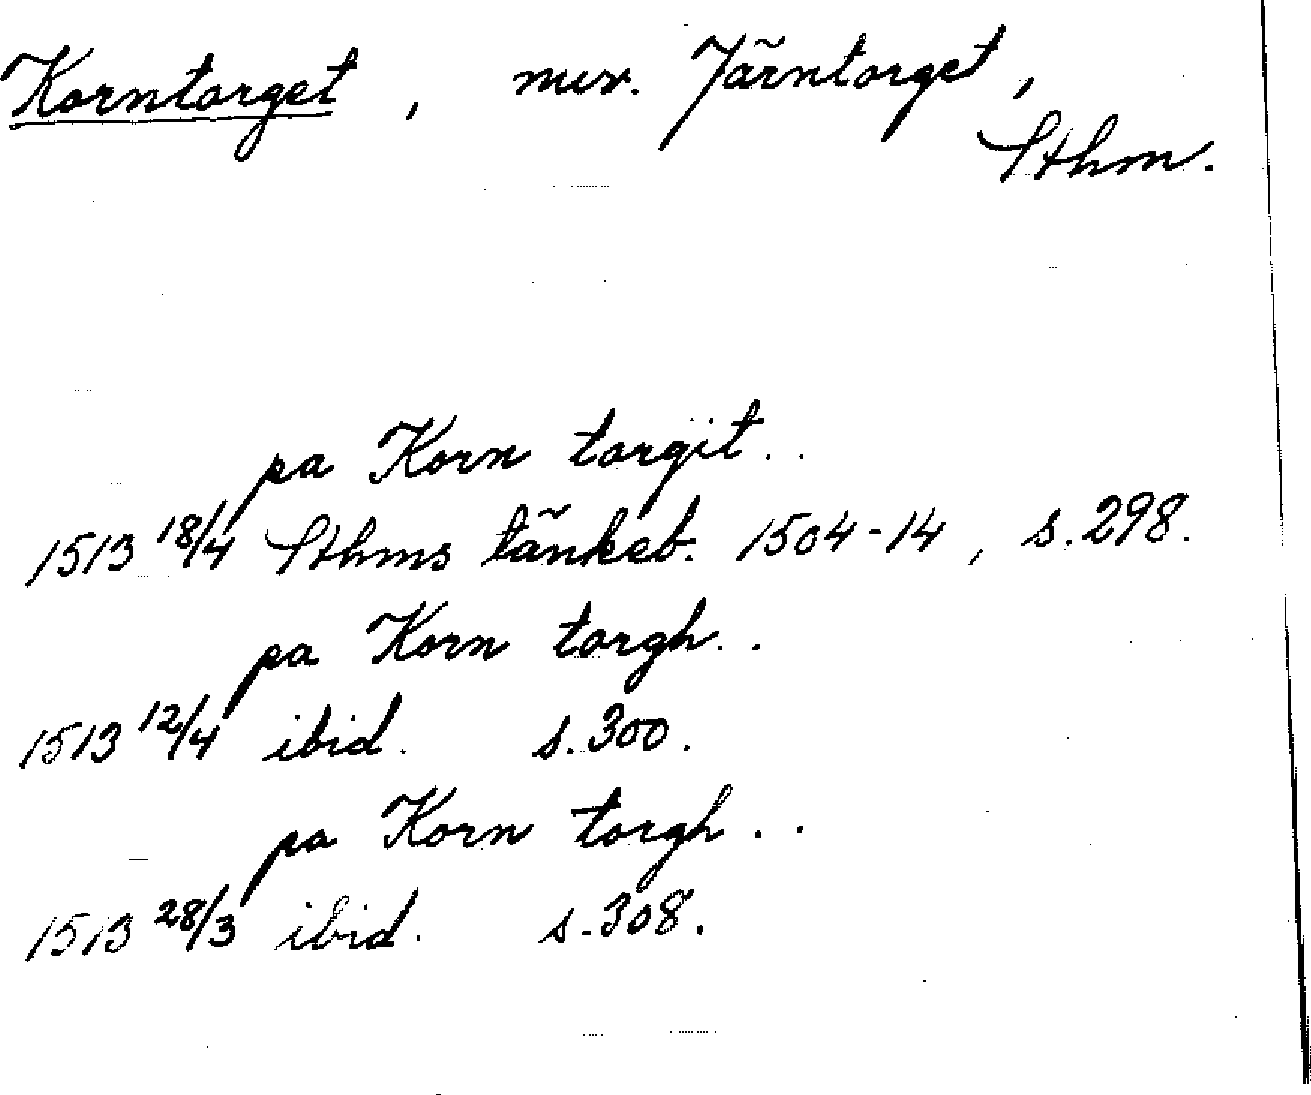 Korntorget, nuv. Järntorget,
Sthm.
pa Korn torgit..
1513 18/4 Sthms tänkeb. 1504-14, s. 298.
pa Korn torgh..
1513 12/4 ibid. s. 300.
pa Korn torgh..
1513 28/3 ibid. s. 308.